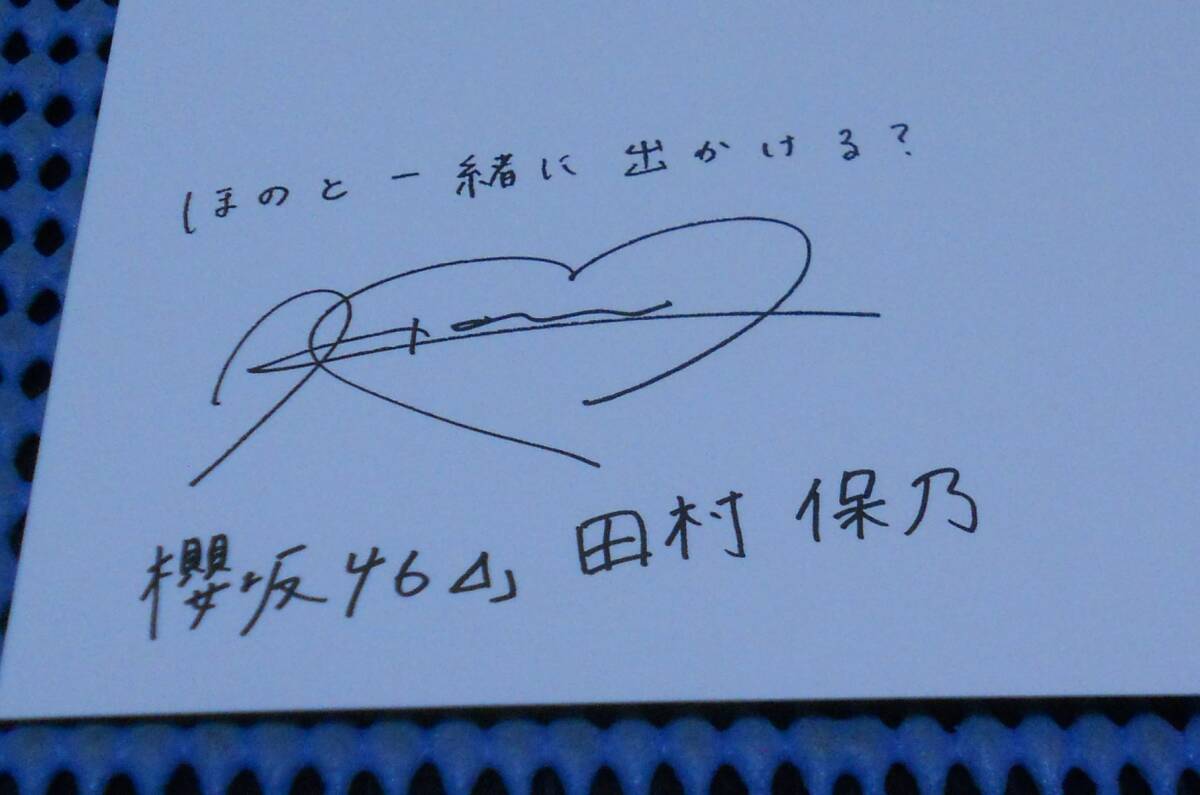 ほのと一緒に出かける?
櫻坂46 田村 保乃